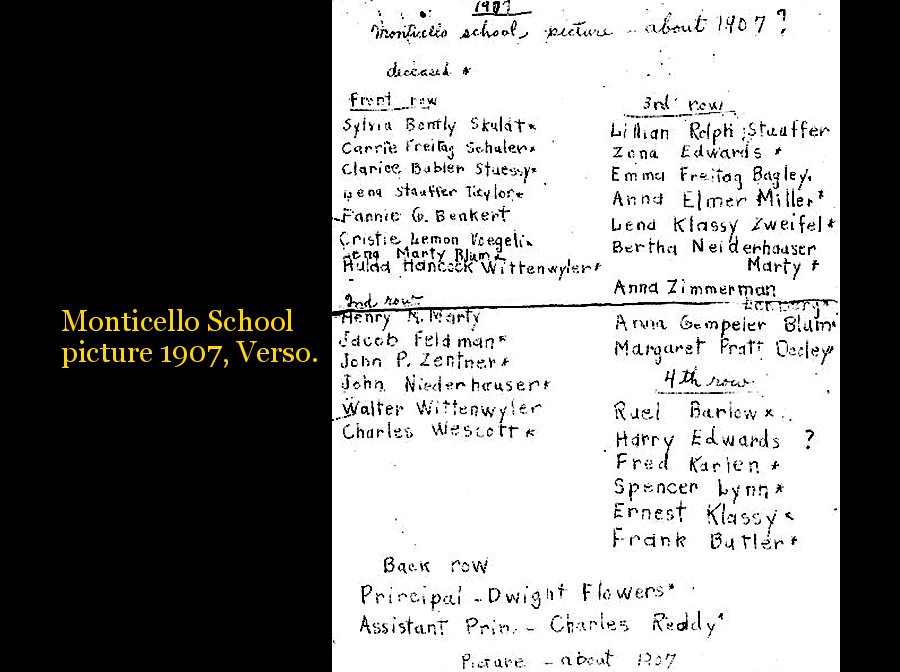 Monticello School
picture 1907, Verso.
1907
Monticello school picture - about 1907 ?
deceased *
Front row
Sylvia Bontly Skuldt*
Carrie Freitag Schuler*
Clarice Babler Stuessy*
Lena Stauffer Taylor*
Fannie G. Benkert
Cristie Lemon Voegeli*
Lena Marty Blum*
Hulda Hancock Wittenwyler*
2nd row
Henry M. Marty
Jacob Feldman*
John P. Zentner*
John Niederhauser*
Walter Wittenwyler
Charles Wescott*
3rd row
Lillian Rolph Stauffer
Zona Edwards *
Emma Freitag Bagley.
Anna Elmer Miller*
Lena Klassy Zweifel*
Bertha Neiderhauser
Marty *
Anna Zimmerman
Anna Gempeler Blum*
Margaret Pratt Ooley*
4th row
Ruel Barlow *
Harry Edwards ?
Fred Karlen *
Spencer Lynn *
Ernest Klassy *
Frank Butler*
Back row
Principal - Dwight Flowers*
Assistant Prin. - Charles Reddy*
Picture - about 1907